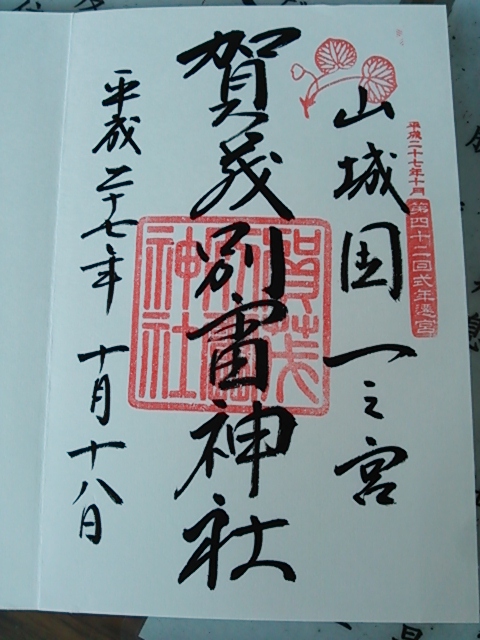 平成二十七年十月
第四十二回式年遷宮
山城国一之宮
賀茂別雷神社
賀茂別雷神社
平成二十七年十月十八日